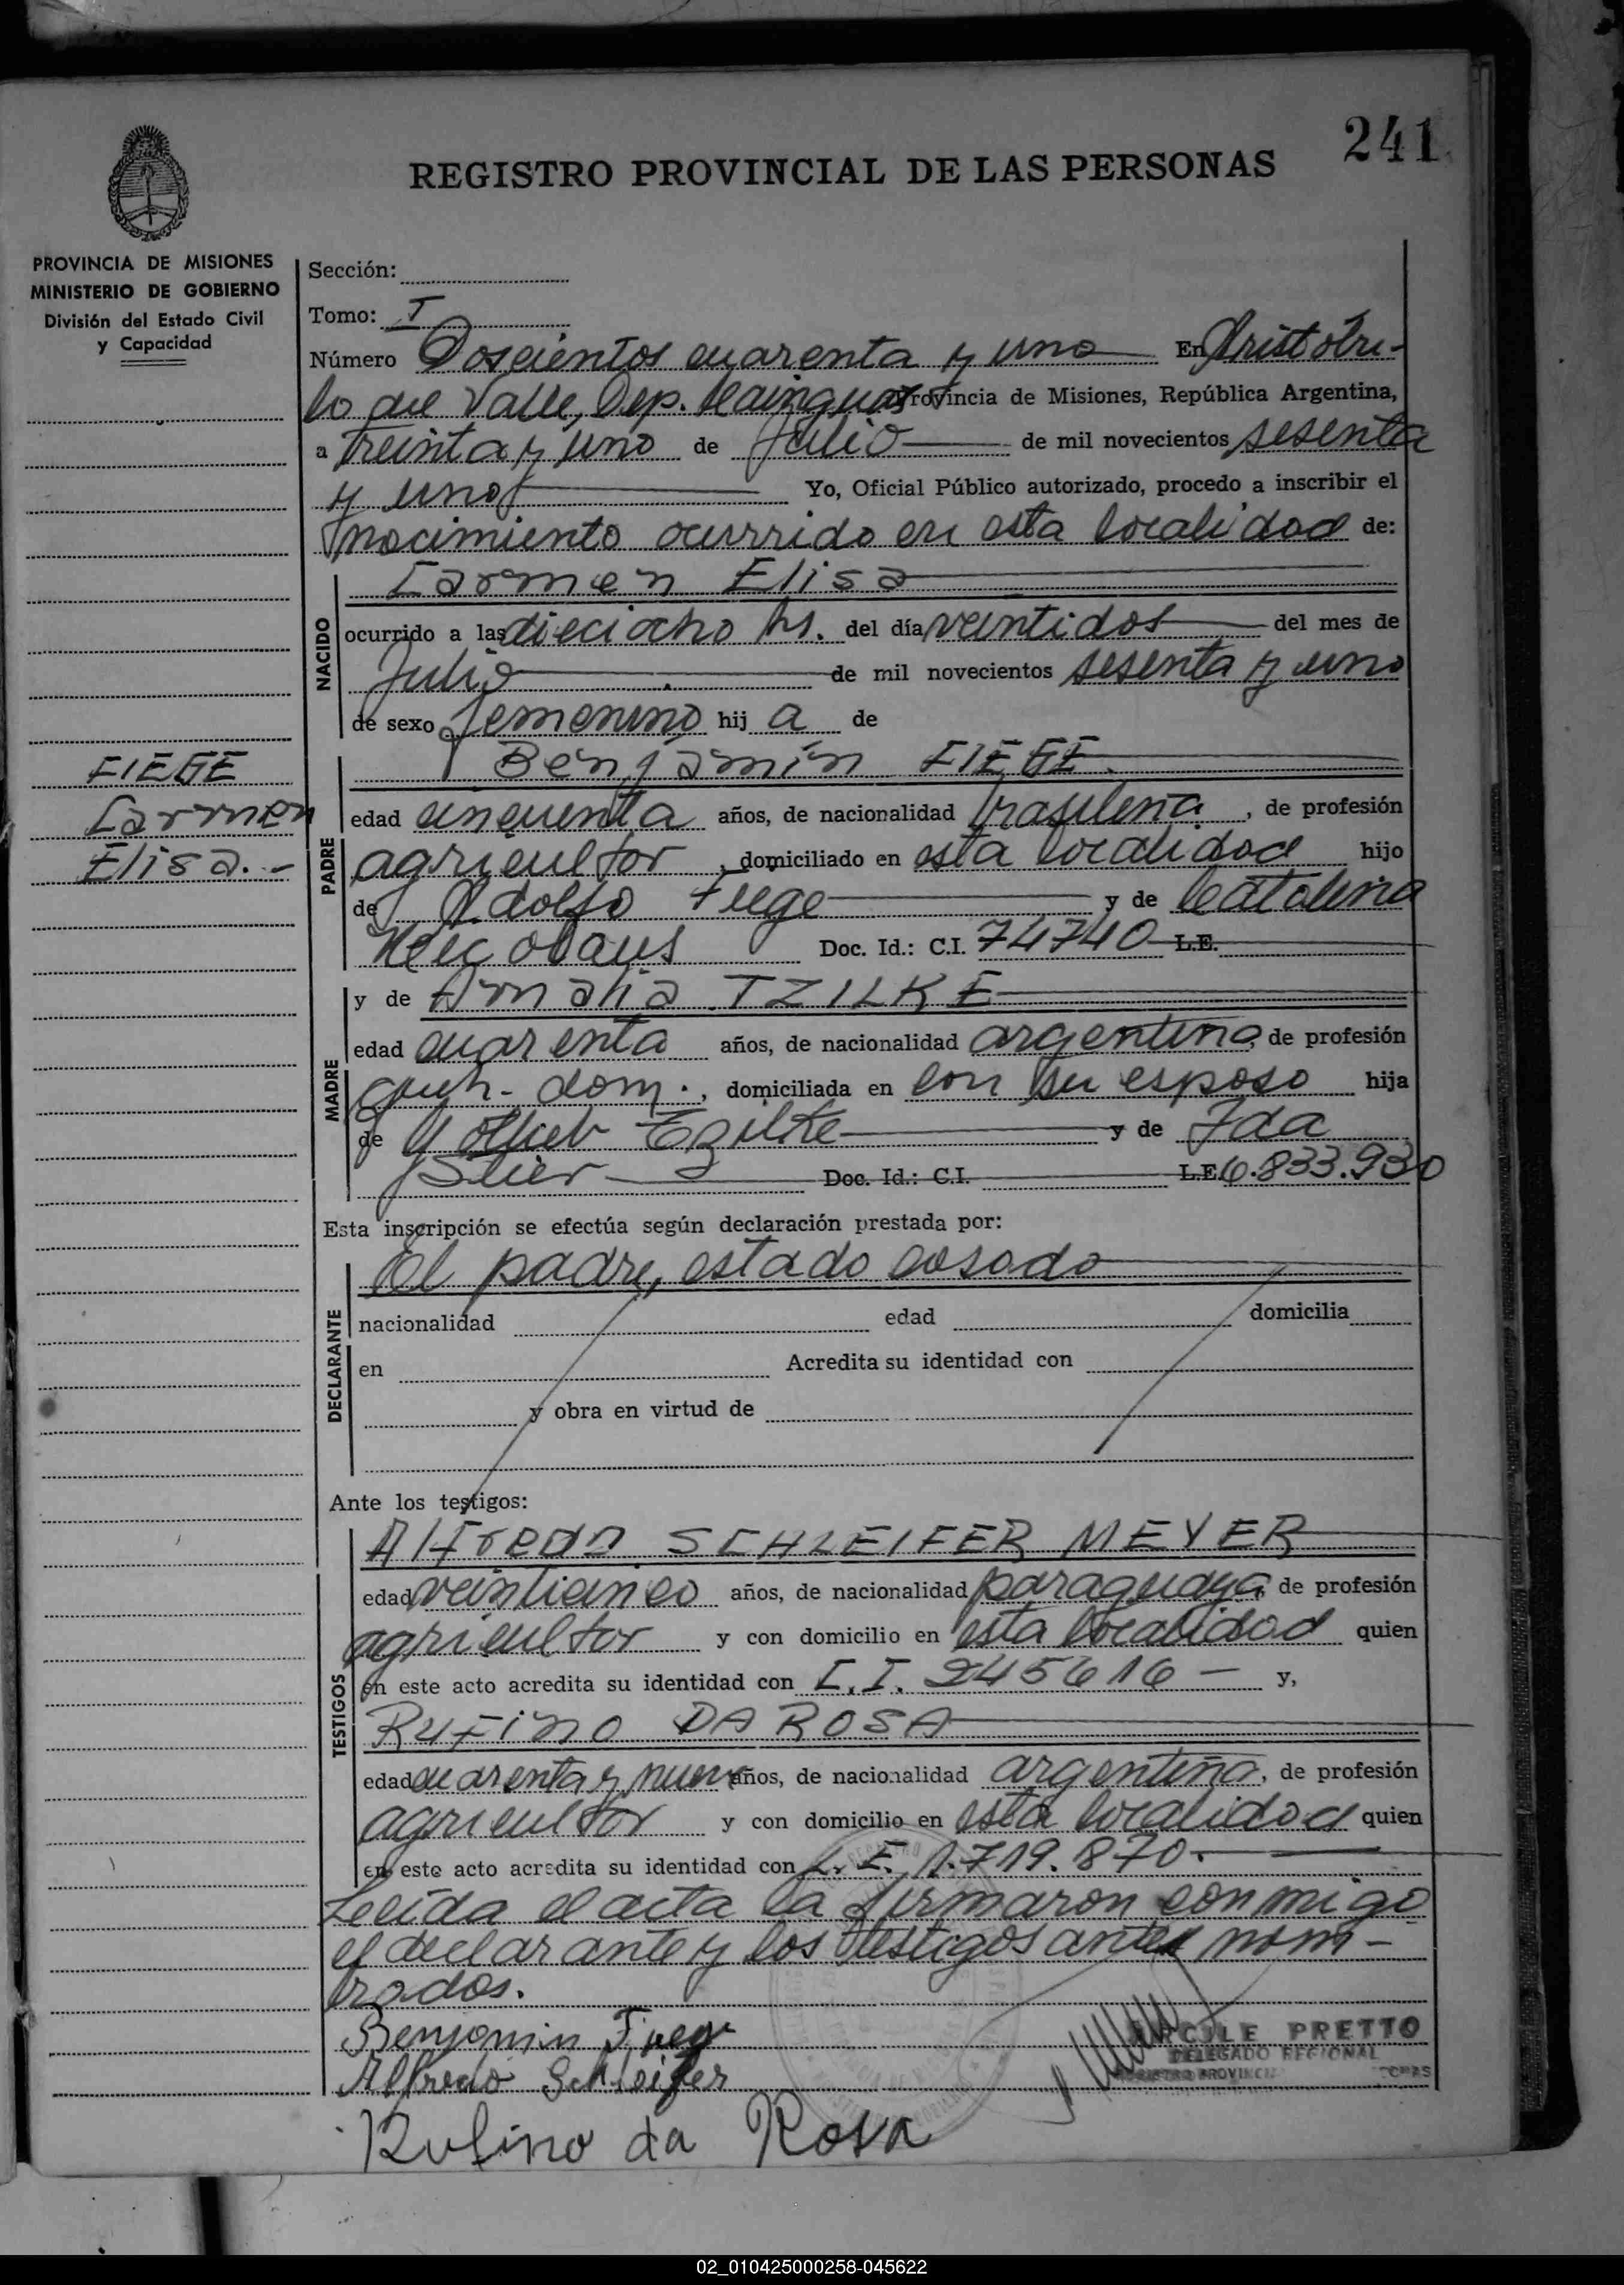 241
REGISTRO PROVINCIAL DE LAS PERSONAS
PROVINCIA DE MISIONES
MINISTERIO DE GOBIERNO
División del Estado Civil
y Capacidad
Sección:
Tomo: I
Número Doscientos cuarenta y uno En Aristóbu-
lo del Valle, Dep. Cainguas Provincia de Misiones, República Argentina,
a treinta y uno de Julio de mil novecientos sesenta
y uno Yo, Oficial Público autorizado, procedo a inscribir el
nacimiento ocurrido en esta localidad de:
NACIDO
Carmen Elisa
ocurrido a las dieciocho hs. del día veintidos del mes de
Julio de mil novecientos sesenta y uno
de sexo femenino hij a de
FIEGE
Carmen
Elisa.-
PADRE
Benjamín FIEGE
edad cincuenta años, de nacionalidad brasileña, de profesión
agricultor, domiciliado en esta localidad hijo
de Adolfo Fiege y de Catalina
Doc. Id.: C.I. 74740 L.E.
MADRE
y de Amalia TZILKE
edad cuarenta años, de nacionalidad argentina, de profesión
queh. dom., domiciliada en con su esposo hija
de Gottlieb Tzilke y de Ida
Doc. Id.: C.I. L.E. 6.833.930
Esta inscripción se efectúa según declaración prestada por:
DECLARANTE
El padre, estado casado
nacionalidad edad domicilia
en Acredita su identidad con
y obra en virtud de
Ante los testigos:
TESTIGOS
Alfredo SCHLEIFER MEYER
edad veinticinco años, de nacionalidad paraguaya, de profesión
agricultor y con domicilio en esta localidad quien
en este acto acredita su identidad con C.I. 245616 - y,
Rufino DA ROSA
edad cuarenta y nueve años, de nacionalidad argentina, de profesión
agricultor y con domicilio en esta localidad quien
en este acto acredita su identidad con L.E. 1.719.870.
Leída el acta la firmaron conmigo
el declarante y los testigos antes nom-
brados.
Benjamin Fiege
Alfredo Schleifer
Rufino da Rosa
PRETTO
DELEGADO REGIONAL
02_010425000258-045622